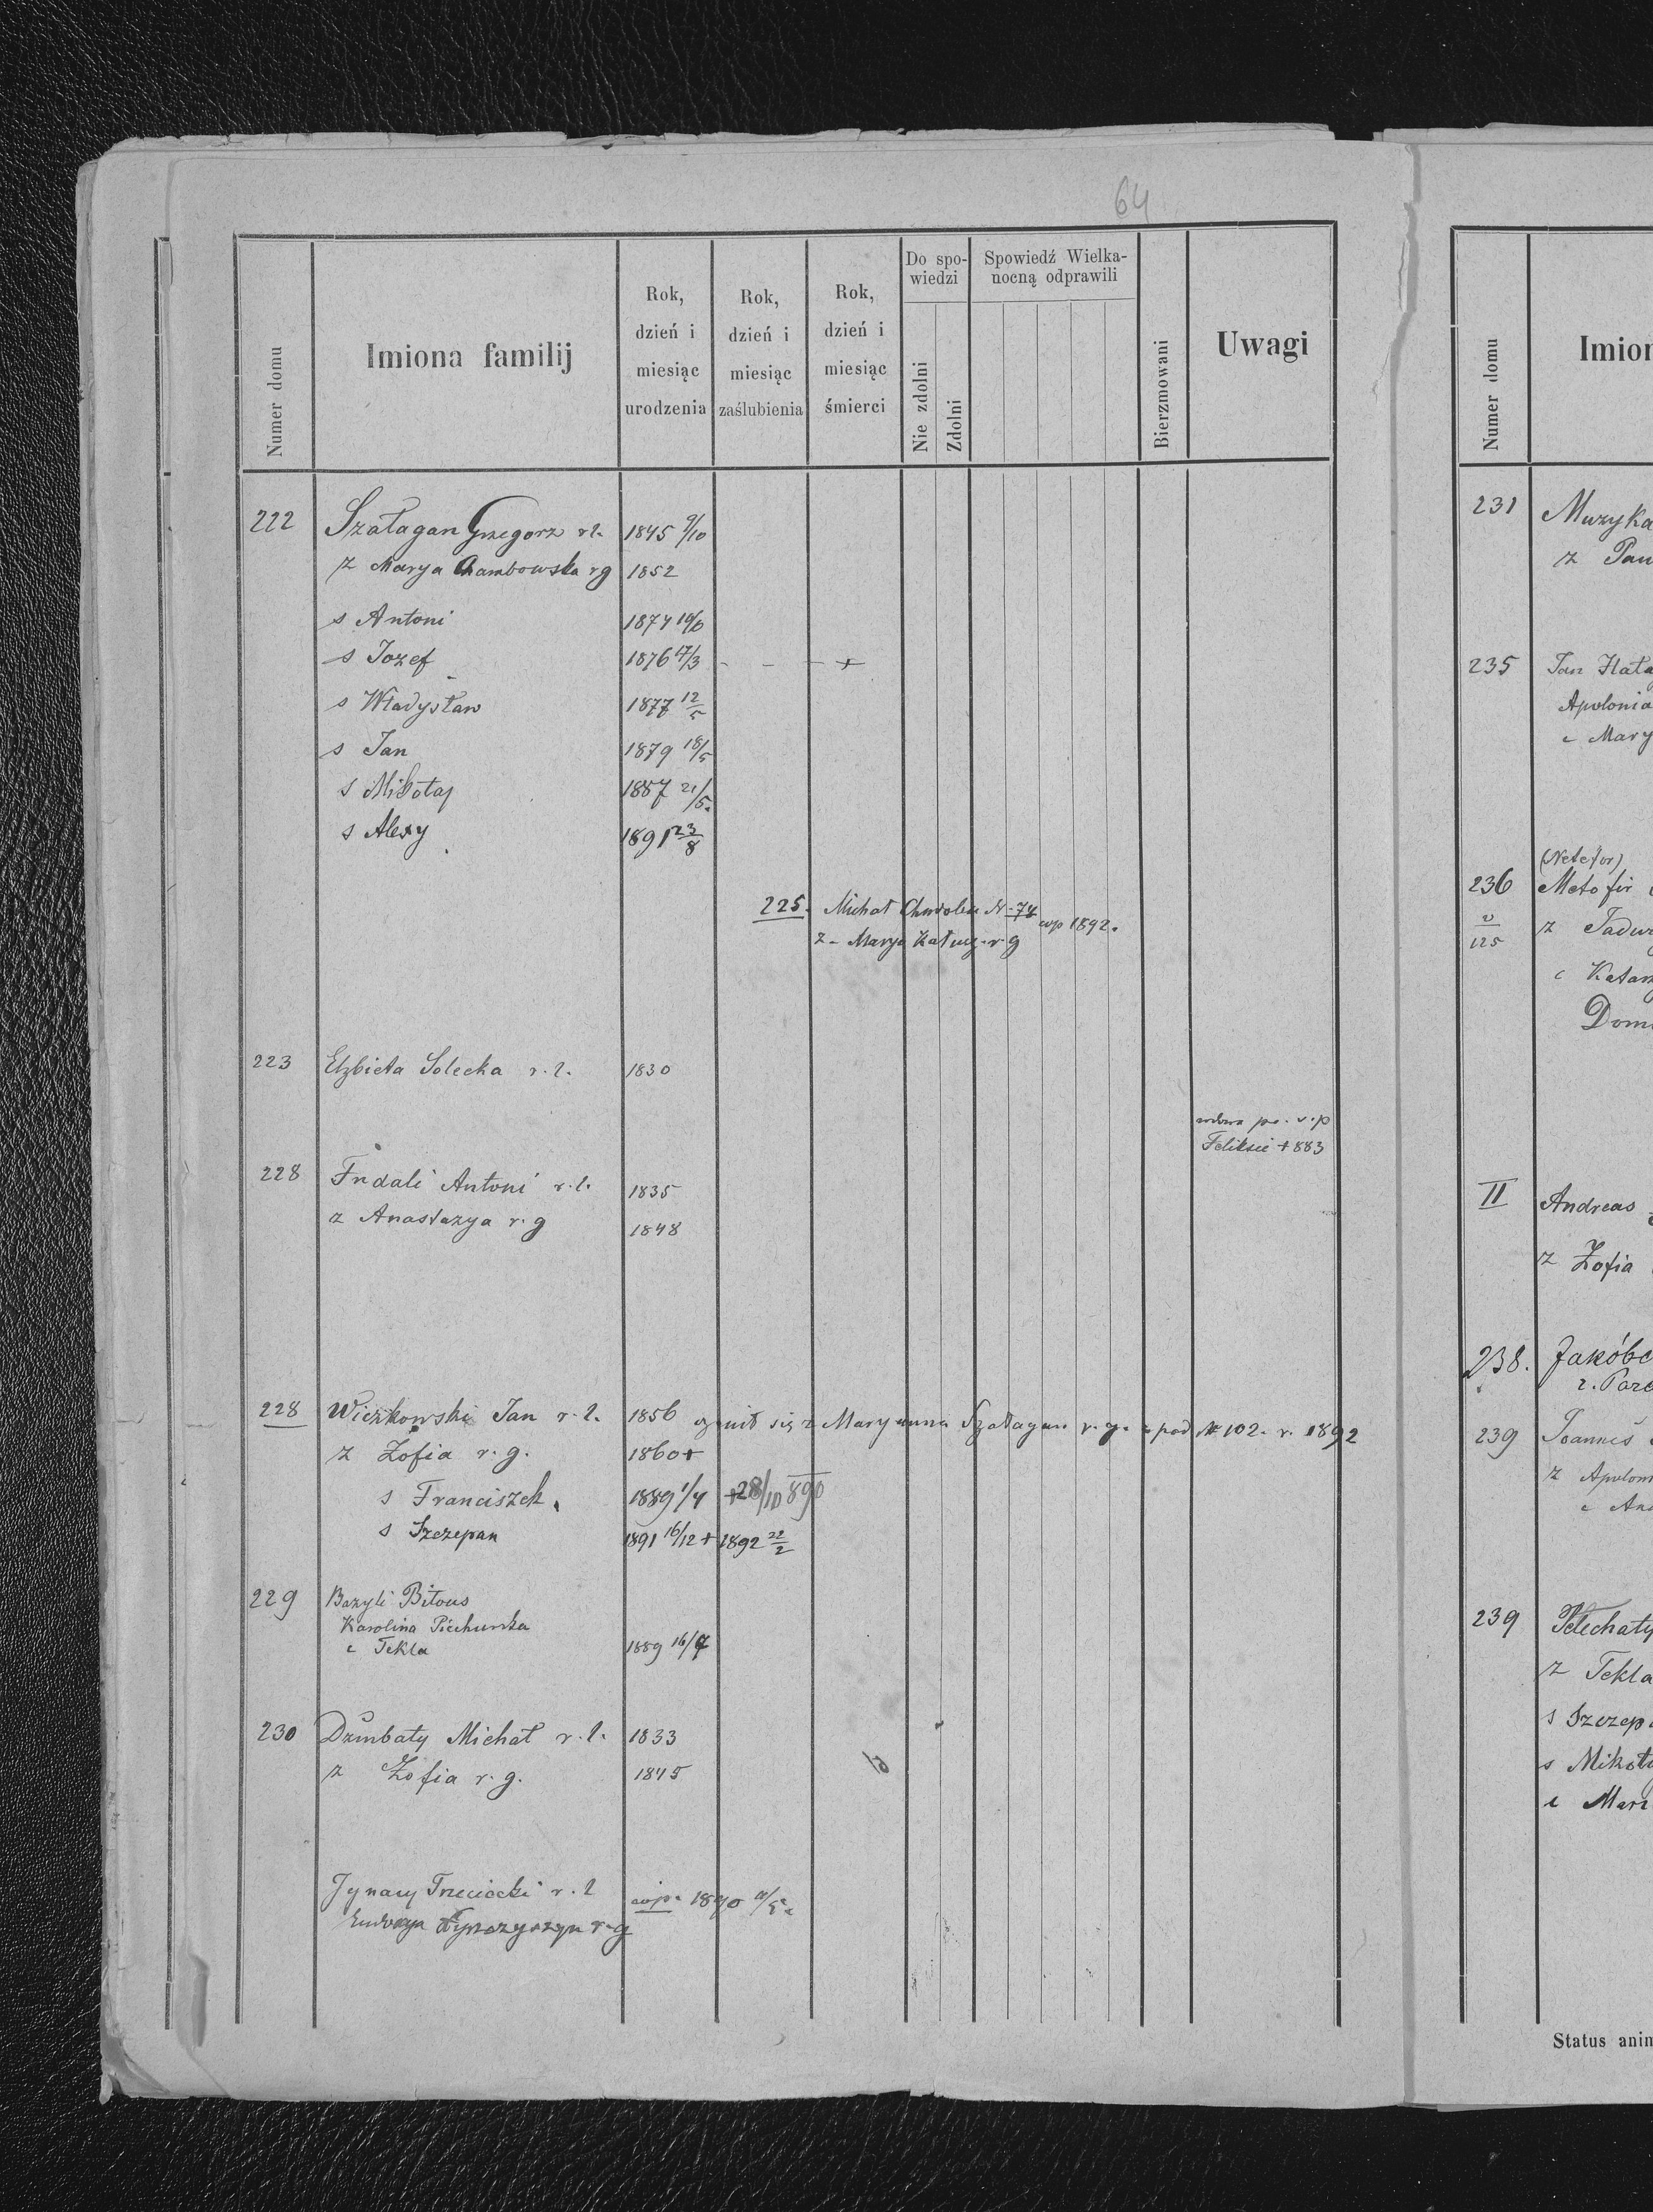 64
Numer domu
Imiona familij
Rok, dzień i miesiąc urodzenia
Rok, dzień i miesiąc zaślubienia
Rok, dzień i miesiąc śmierci
Do spo-
wiedzi
Nie zdolni
Zdolni
Spowiedź Wielka-
nocną odprawili
Bierzmowani
Uwagi
222 Szałagan Grzegorz r.l. 1845 9/10
z Marya Chambowska rg 1852
s Antoni 1874 10/6
s Jozef 1876 17/3 - - - +
s Władysław 1877 12/5
s Jan 1879 18/5
s Mikołaj 1887 21/5.
s Alexy 1891 23/8
225. Michał N-78 wp 1892.
z- Marya r g
223 Elzbieta Solecka r.l. 1830
wdowa po ś.p
Feliksie + 883
228 Fndali Antoni r.l. 1835
z Anastazya r.g 1848
228 Wiezkowski Jan r.l. 1856 ożenił się z Maryanna Szałagan r.g. z pod N 102. r. 1892
z Zofia r.g. 1860+
s Franciszek. 1889 1/4 +28/10 890
s Szczepan 1891 16/12 + 1892 22/2
229 Bazyli Biłous
Karolina Piechurska
c Tekla 1889 16/7
230 Dzmbaty Michał r.l. 1833
z Zofia r.g. 1845
Ignacy Trzeciecki r.l wp. 1890
r-g
Numer domu
Imion
231 Muzyka
z Pau
235 Jan Hała
Apolonia
c Mary
(Netefor)
236 Metofir
z Jadw
c Katarz
Dom
II Andreas
z Zofia
238. Jakóbc
z. Para
239 Joannes
z Apolon
c An
239 Pelechaty
z Tekla
s Szczep
s Mikoł
c Mar
Status anim